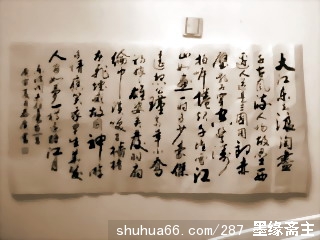 大江东去浪淘盡
千古风流人物故垒西
边人道是三国周郎赤
壁乱石穿空惊涛
拍岸卷起千堆雪江
山如画一时多少豪傑
遥想公瑾当年小乔
初嫁了雄姿英发羽扇
纶巾谈笑间樯橹
灰飞烟灭故国神游
多情应笑我早生华发
人生如梦一尊还酹江月
shuhua66.com/287 墨缘斋主